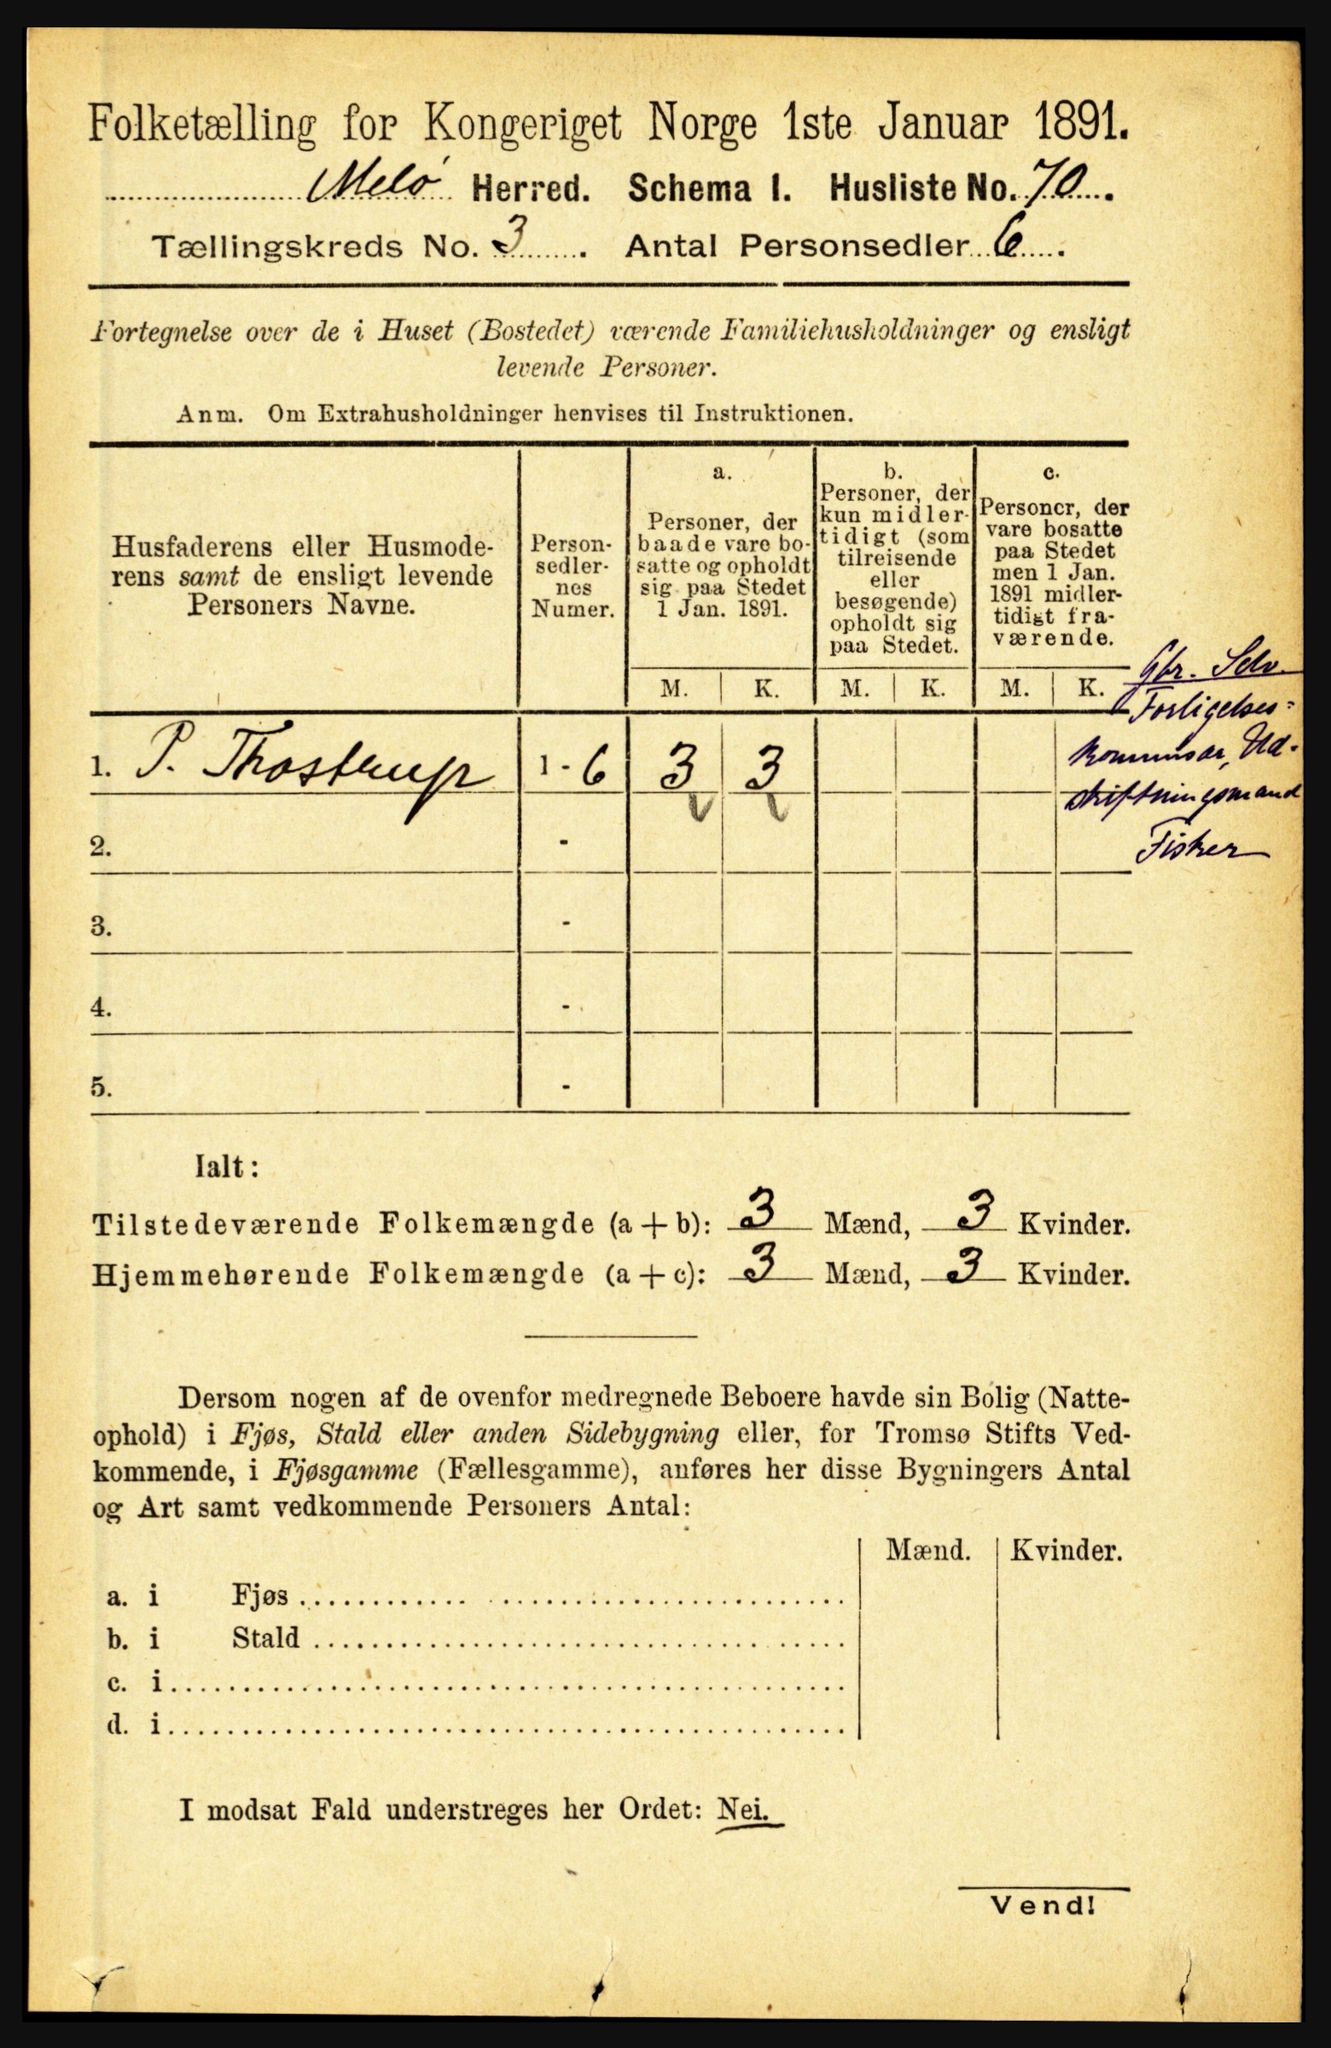 Folketælling for Kongeriget Norge 1ste Januar 1891.
Melø Herred. Schema 1. Husliste No. 70.
Tællingskreds No. 3. Antal Personsedler 6.
Fortegnelse over de i Huset (Bostedet) værende Familiehusholdninger og ensligt
levende Personer.
Anm. Om Extrahusholdninger henvises til Instruktionen.
Husfaderens eller Husmode-
rens samt de ensligt levende
Personers Navne.
Person-
sedler-
nes
Numer.
a.
Personer, der
baade vare bo-
satte og opholdt
sig paa Stedet
1 Jan. 1891.
b.
Personer, der
kun midler-
tidigt (som
tilreisende
eller
besøgende)
opholdt sig
paa Stedet.
c.
Personer, der
vare bosatte
paa Stedet
men 1 Jan.
1891 midler-
tidigt fra-
værende.
M. K. M. K. M. K.
Gbr. Selv.
Forligelses-
kommissær, Ud-
skiftningsmand
Fisker
1. P. Thostrup 1 - 6 3 3
2. -
3. -
4. -
5. -
Ialt:
Tilstedeværende Folkemængde (a + b): 3 Mænd, 3 Kvinder.
Hjemmehørende Folkemængde (a + c): 3 Mænd, 3 Kvinder.
Dersom nogen af de ovenfor medregnede Beboere havde sin Bolig (Natte-
ophold) i Fjøs, Stald eller anden Sidebygning eller, for Tromsø Stifts Ved-
kommende, i Fjøsgamme (Fællesgamme), anføres her disse Bygningers Antal
og Art samt vedkommende Personers Antal:
Mænd. Kvinder.
a. i Fjøs
b. i Stald
c. i
d. i
I modsat Fald understreges her Ordet: Nei.
Vend!